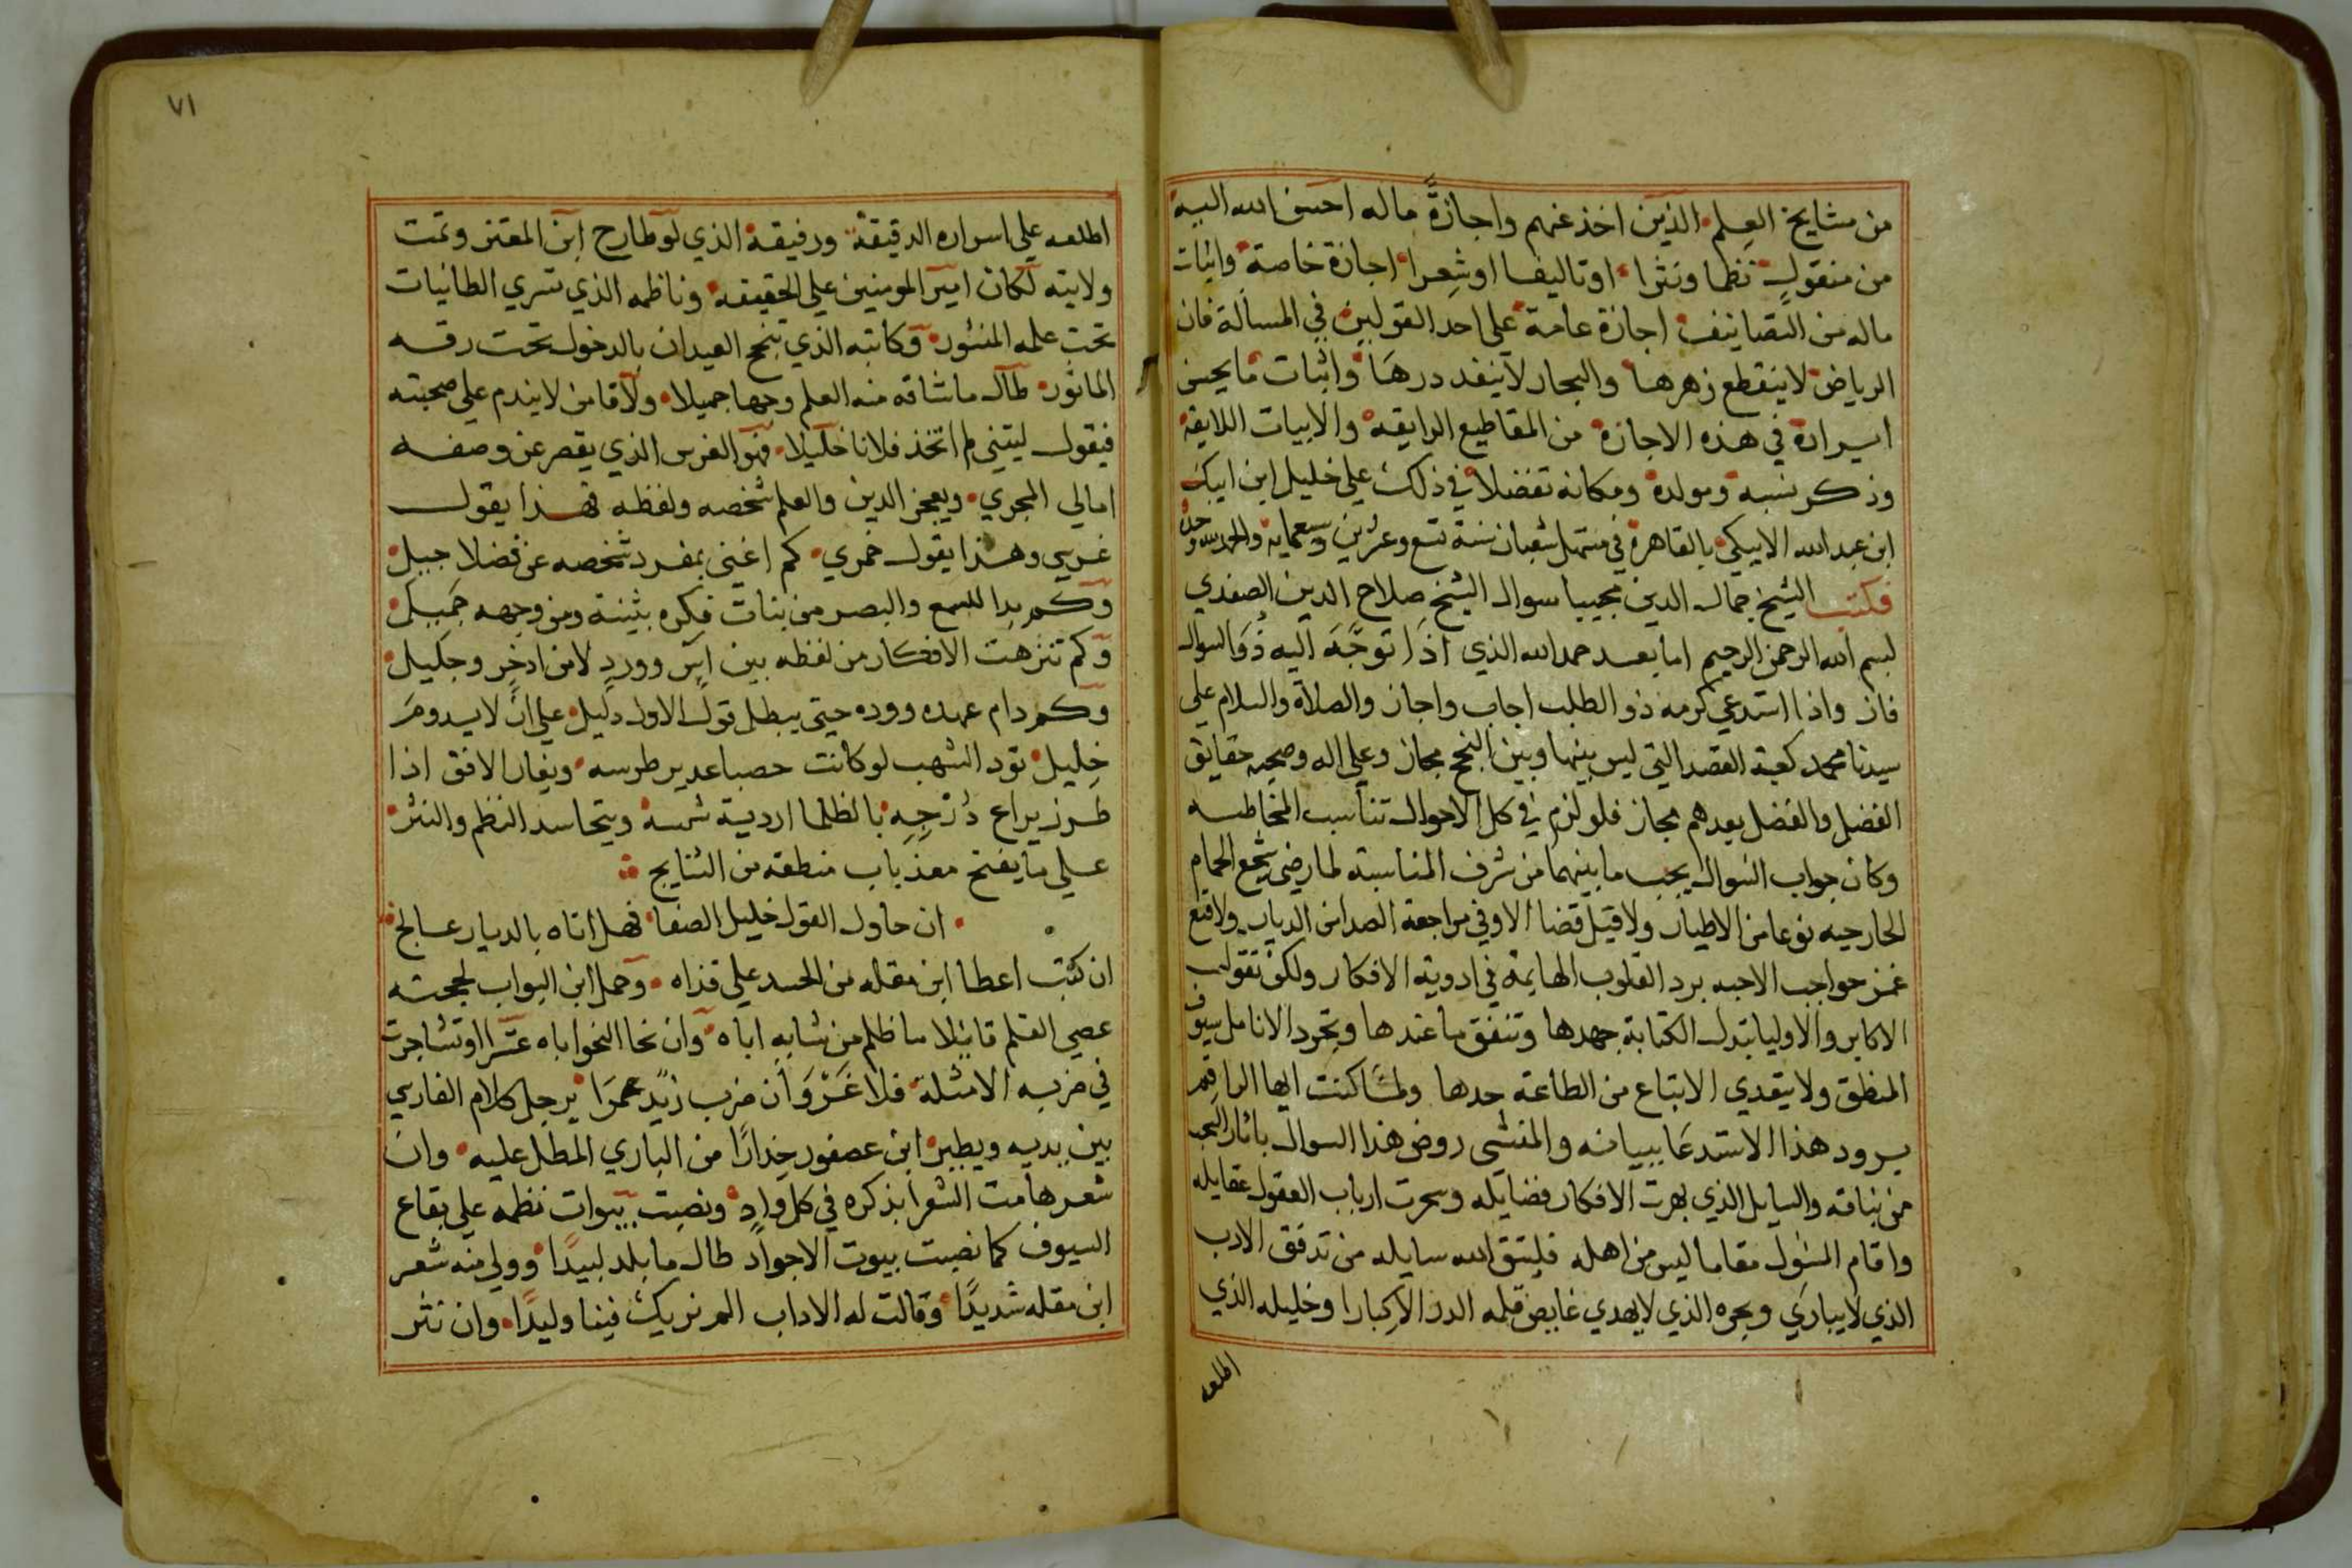 من مشايخ العلم الذين اخذ عنهم واجازةً ماله احسن الله اليه
من منقولٍ نظما ونثرا او تاليفا او شعرا اجازة خاصة واثبات
ماله من التصانيف اجازة عامة على احد القولين في المسالة فان
الرياض لا ينقطع زهرها والبحار لا ينفد دررها واثبات ما يحسن
ايراده في هذه الاجازة من المقاطيع الرايقه والابيات اللايقة
وذكر نسبه ومولده ومكانه تفضلا في ذلك على خليل ابن ايبك
ابن عبد الله الايبكي بالقاهرة في مستهل شعبان سنة تسع وعشرين وسبعماية والحمد لله وحده
فكتب الشيخ جمال الدين مجيبا سوال الشيخ صلاح الدين الصفدي
بسم الله الرحمن الرحيم اما بعد حمد الله الذي اذا توجَّه اليه ذُو السوال
فاز واذا استدعي كرمه ذو الطلب اجاب واجاز والصلاة والسلام على
سيدنا محمد كعبة القصد التي ليس بينها وبين النجح مجاز وعلى اله وصحبه حقايق
الفضل والفضل بعدهم مجاز فلو لزم في كل الاحوال تناسب المخاطبه
وكان جواب السوال يجب ما بينهما من شرف المناسبة لما رضي سجع الحمام
لجارحيه نوعا من الاطيار ولا قبل قضا الاوفي مراجعة الصدا من الديار ولا قنع
غمز حواجب الاحبه برد القلوب الهايمة في ادوية الافكار ولكن تقول
الاكابر والاوليا تبدل الكتابة جهدها وتنفق ما عندها وتجرد الانامل سيوف
المنطق ولا يتعدي الاتباع من الطاعة حدها ولما كنت ايها الراقم
برود هذا الاستدعا ببيانه والمنشى روض هذا السوال باثار السحب
من بنانه والسايل الذي بهرت الافكار فضايله وسحرت ارباب العقول عقايله
واقام المسؤل مقاما ليس من اهله فليتق الله سايله من تدفق الادب
الذي لا يباري وبحره الذي لا يهدي غايص قلمه الدر الا كبارا وخليله الذي
اطلعه
٧١
اطلعه على اسراره الدقيقة ورفيقه الذي لو طارح ابن المعتز وتمت
ولايته لكان امير المومنين على الحقيقه وناظمه الذي تسري الطائيات
تحت علمه المنشور وكاتبه الذي تنجح العيدان بالدخول تحت رقه
الماثور طال ما شاقه منه العلم وجها جميلا ولاقا من لا يندم على صحبته
فيقول ليتني لم اتخذ فلانا خليلا فهو الغرس الذي يقصر عن وصفه
امالي الهجري ويعجز الدين والعلم شخصه ولفظه فهذا يقول
غرسي وهذا يقول ثمري كم اغني بمفرد شخصه عن فضلا جبيل
وكم بدا للسمع والبصر من بنات فكره بثينة ومن وجهه جميل
وكم تنزهت الافكار من لفظه بين اس وورد لا من اذخر وجليل
وكم دام عهده ووده حتى يبطل قول الاول دليل على ان لا يدوم
خليل تود الشهب لو كانت حصبا غدير طرسه ويغار الافق اذا
طرز يراع درجه بالظلما اردية شمسه ويتحاسد النظم والنثر
على ما يفتح معذباب منطقه من النتايج
ان حاول القول خليل الصفا فهل اتاه بالديار عالج
ان كتب اعطا ابن مقله من الحسد على قذاه وحمل ابن البواب لحجته
عصي القلم قايلا ما ظلم من شابه اباه وان نحا النحو اباه عشرا وتشاجرت
في ضربه الامثلة فلا غَرْوَ أن ضرب زيد عمرًا يرجل كلام الفارسي
بين يديه ويطير ابن عصفور حذارًا من البازي المطل عليه وان
شعر هامت الشعرا بذكره في كل واد ونصبت بيوات نظمه على بقاع
السيوف كما نصبت بيوت الاجواد طال ما بلد لبيدًا وولي منه شعر
ابن مقله شديدًا وقالت له الاداب الم نربك فينا وليدًا وان نثر